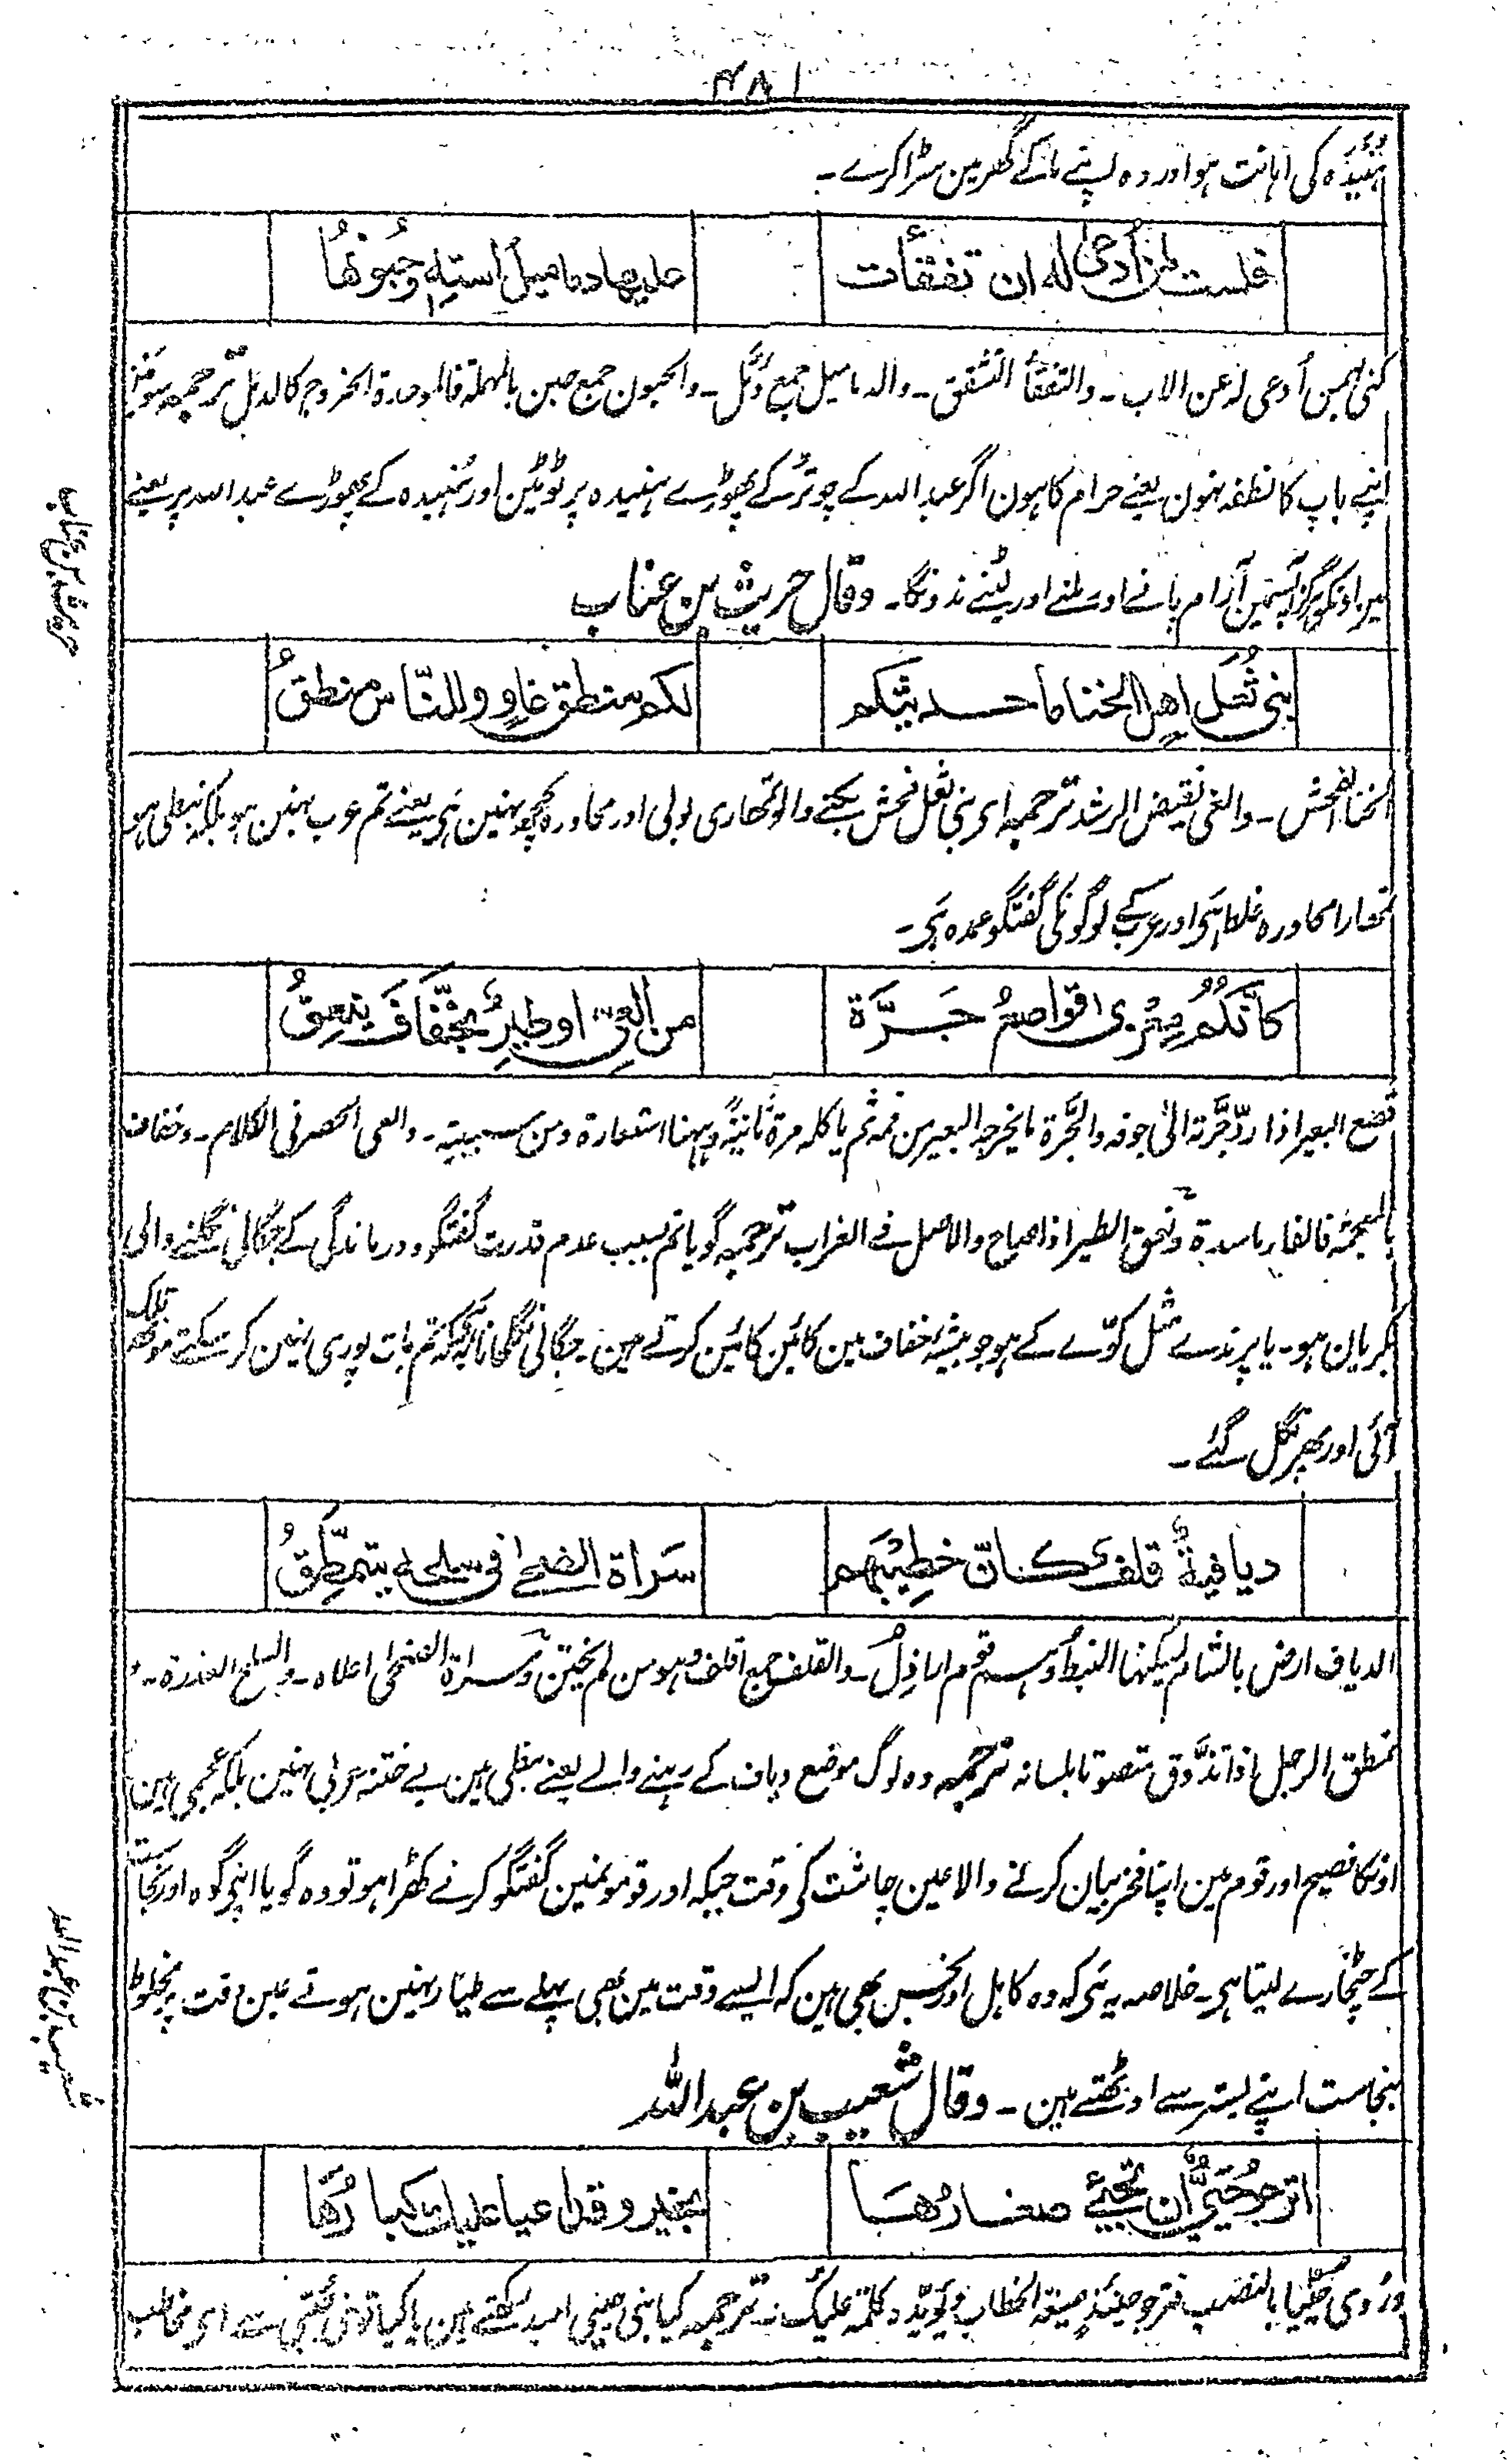 ۴۸۱
ہُنَیدَہ کی اہانت ہو اور وہ اپنے ماکے گھر مین سڑا کرے۔
فلست لمن أدعى له ان تفقأت
عليها دماميل استهِ وحُبُونهاُ
كنى بمن أدعى له عن الاب۔ والتفقأ التشقق۔ والدماميل جمع دُمَّل۔ والحبون جمع حبن بالمهملة فالموحدة الخروج كالدمل ترجمہ سومَین
اپنے باپ کا نطفہ نہون یعنے حرام کا ہون اگر عبد اللہ کے چوتڑ کے پھوڑے ہنیدہ پر ٹوٹین اور ہُنیدہ کے پھوڑے عبد اللہ پر یعنے
مین اونکو ہرگز آپسمین آرام پانے اور ملنے اور لپٹنے ندونگا۔ وقال حريث بن عناب
حریث بن عناب
بنى ثُعَل اهل الخنا ما حديثكم
لكم منطق غاوٍ وللنّاس منطقُ
الخنا الفحش۔ والغى نقيض الرشد ترجمہ اے بنی ثعل فحش بکنے والو تمھاری بولی اور محاورہ کچھ نہین ہی یعنے تم عرب نہین ہو بلکہ نبطی ہو
تمھارا محاورہ غلط ہی اور عرب کے لوگونکی گفتگو عمدہ ہی۔
كأنّكمُ مِعْزى قواصعُ جَرَّة
من العِىّ او طيرٌ بخفَّافَ ينعِقُ
قصع البعير اذا ردّ جَرَّته الى جوفه والجَرَّة ما يخرجه البعير من فمه ثم ياكله مرةً ثانيةً وههنا استعارة ومن سببية۔ والعى الحصر فى الكلام۔ وخفاف
بالمعجمة فالفا ء ماسدة ونعق الطير اذا صاح والاصل فے الغراب ترجمہ گویا تم بسبب عدم قدرت گفتگو و درماندگی کے جگالی نگلنے والی
بکریان ہو۔ یا پرندے مثل کوّے کے ہو جو بیشۂ خفاف مین کائین کائین کرتے ہین۔ جگالی نگلنا یہ کہ تم بات پوری نہین کر سکتے مونھ تلک
آئی اور پھر نگل گئے۔
ديافيةٌ قلفٌ كانّ خطِيْبَهم
سَراة الضحٰى فى سلحه يتمطّقُ
الدياف ارض بالشام يسكنها النبط وُهم قوم اراذِل۔ والقلف جمع اقلف وهو من لم يختن وسراة الضحٰى اعلاه۔ والسلح العذرة۔ و
تمطق الرجل اذا تذَوَّق متصوتا بلسانه ترجمہ وہ لوگ موضع دیاف کے رہنے والے یعنے نبطی ہین بے ختنہ عربی نہین بلکہ عجمی ہین
اونکا فصیح اور قوم مین اپنا فخر بیان کرنے والا عین چاشت کی وقت جبکہ اور قومونمین گفتگو کرنے کھڑا ہو تو وہ گویا اپنی گوہ اور نجاست
کے چٹخارے لیتا ہی۔ خلاصہ یہ ہی کہ وہ کاہل اور نجس بھی ہین کہ ایسے وقت مین بھی پہلے سے طیار نہین ہوتے عین وقت پر مخلوط
بنجاست اپنے بستر سے اوٹھتے ہین۔ وقال شعيب بن عبد الله
شعیب بن عبد اللہ
اترجو حُيَىٌّ ان تجئ صغارُهَا
بخير وقد اعيا عليك كبارُهَا
ورُوى حُيَيّاً بالنصب فترجو حينئذٍ صيغة الخطاب ويؤيّده كلمة عليك۔ ترجمہ کیا بنی حیی امید رکھتے ہین یا کیا تو بنی حیی سے اے مخاطب